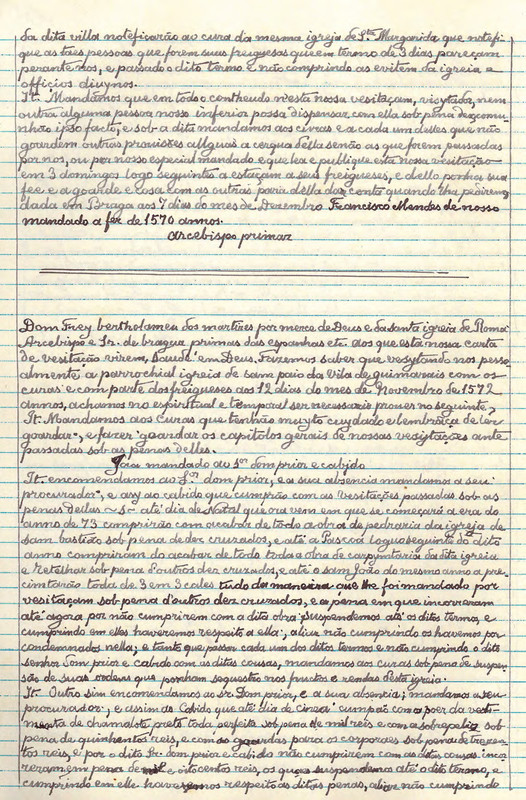 da dita villa noteficarão ao cura da mesma igreja de Sta Margarida que notefi-
que as taes pessoas que forem suas freiguesas que em termo de 3 dias pareçam
perante nos, e passado o dito termo e não comprindo as evitem da igreia e
officios divynos.
It. Mandamos que em todo o contheudo n'esta nossa vesitaçam, visytador, nem
outra alguma pessoa nosso inferior possa dispensar com ella sob pena dexcomu-
nhão ipso facto, e sob a dita mandamos aos curas e a cada um delles que não
goardem outras provisões allguãs a cerqua della senão as que forem passadas
por nos, ou por nosso especial mandado e que lea e publique esta nossa vesitação
em 3 domingos logo seguintes a estaçam a seus freigueses, e dello ponha sua
fee e a goarde e cosa com as outras para della dar conta quando lha pedirem
dada em Braga aos 7 dias do mes de Dezembro Francisco Mendes de nosso
mandado a fez de 1570 annos.
Arcebispo primaz
Dom Frey bertholameu dos martires por merce de Deus e da Santa igreia de Roma
Arcebispo e Sr. de bragua primas das espanhas etc. aos que esta nossa carta
de vesitação virem, Saude em Deus, Fazemos saber que vesytando nos pesso-
almente a parrochial igreia de sam paio da vila de guimarais com os
curas e com parte dos freigueses aos 12 dias do mes de Novembro de 1572
annos, achamos no espiritual e temporal ser necessario prover no seguinte,
It. Mandamos aos curas que tenhão muyto cuydado e lembrãça de ler
goardar, e fazer goardar os capitolos gerais de nossas vesytações ante
passadas sob as penas delles.
Para mandado ao Sor dom prior e cabido
It. encomendamos ao Sor dom prior, e a sua absencia mandamos a seu
procurador, e assy ao cabido que cumprão com as Vesitações passadas sob as
penas dellas - S - até dia de Natal que ora vem em que se começará a era do
anno de 73 comprirão com acabar de todo a obra de pedraria da igreja de
sam bastião sob pena de dez cruzados, e até a Pascoa loguo seguinte do dito
anno compriram do acabar de todo toda a obra de carpyntaria da dita igreia
e retelhar sob pena doutros dez cruzados, e até o sam João do mesmo anno a pre-
cintarão toda de 3 em 3 cales tudo da maneira que lhe foi mandado por
vesitaçam sob pena d'outros dez cruzados, e a pena em que incorreram
até agora por não cumprirem com a dita obra suspendemos até os ditos termos, e
cumprindo em elles haveremos respeito a ella, alias não cumprindo os havemos por
condemnados nella; e tanto que passar cada um dos ditos termos e não cumprindo o dito
senhor Dom prior e cabido com as ditas cousas, mandamos aos curas sob pena de suspen-
são de suas ordens que ponham seguestro nos fructos e rendas desta igreia.
It. Outro sim encomendamos ao sr. Dom prior, e a sua absencia, mandamos a seu
procurador, e assim ao Cabido que até dia de cinza cumpão com a poer da vesti-
menta de chamalote preto toda perfeita sob pena de mil reis e com a sobrepeliz sob
pena de quinhentos reis, e com as goardas para os corporaes sob pena de trezen-
tos reis, e por o dito Sr. dom prior e cabido não cumprirem com as ditas cousas inco-
rreram em pena de mil e oitocentos reis, os quaes suspendemos até o dito termo, e
cumprindo em elle haveremos respeito as ditas penas, alias não cumprindo